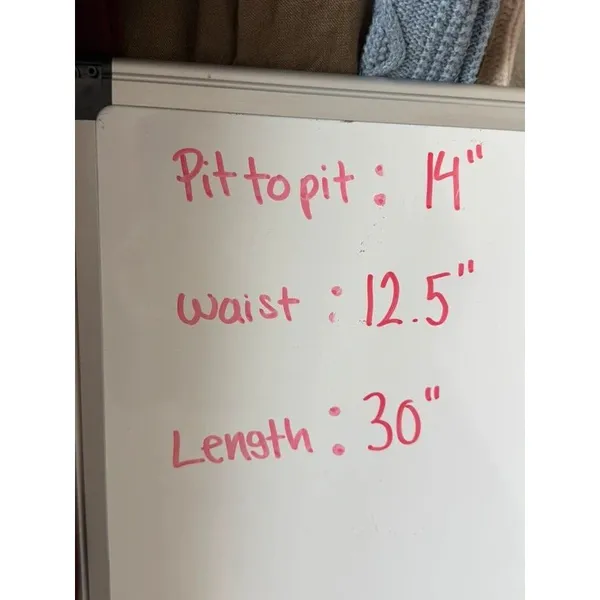 Pit to pit : 14"
Waist : 12.5"
Length : 30"